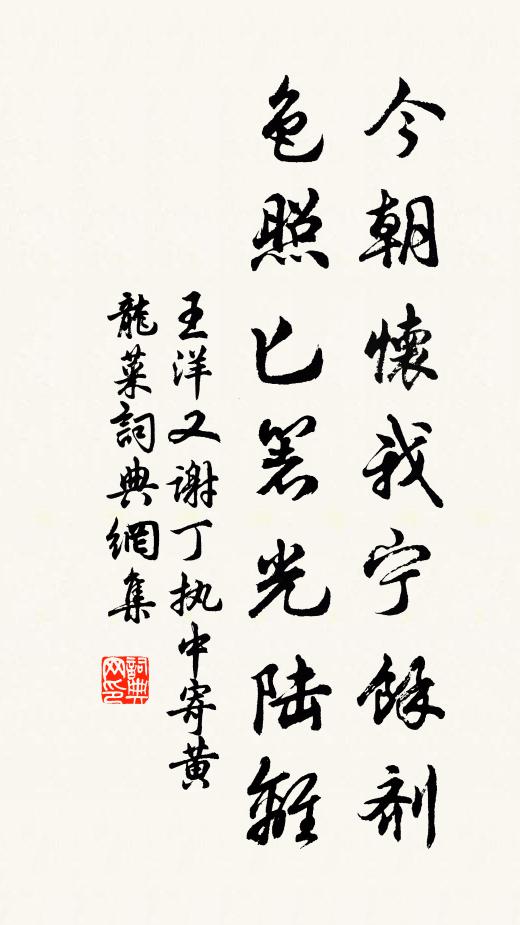 今朝懷我宁餘剂
色照匕箸光陆離
王洋又谢丁执中寄黄
龍菜詞典網集
詞典网印